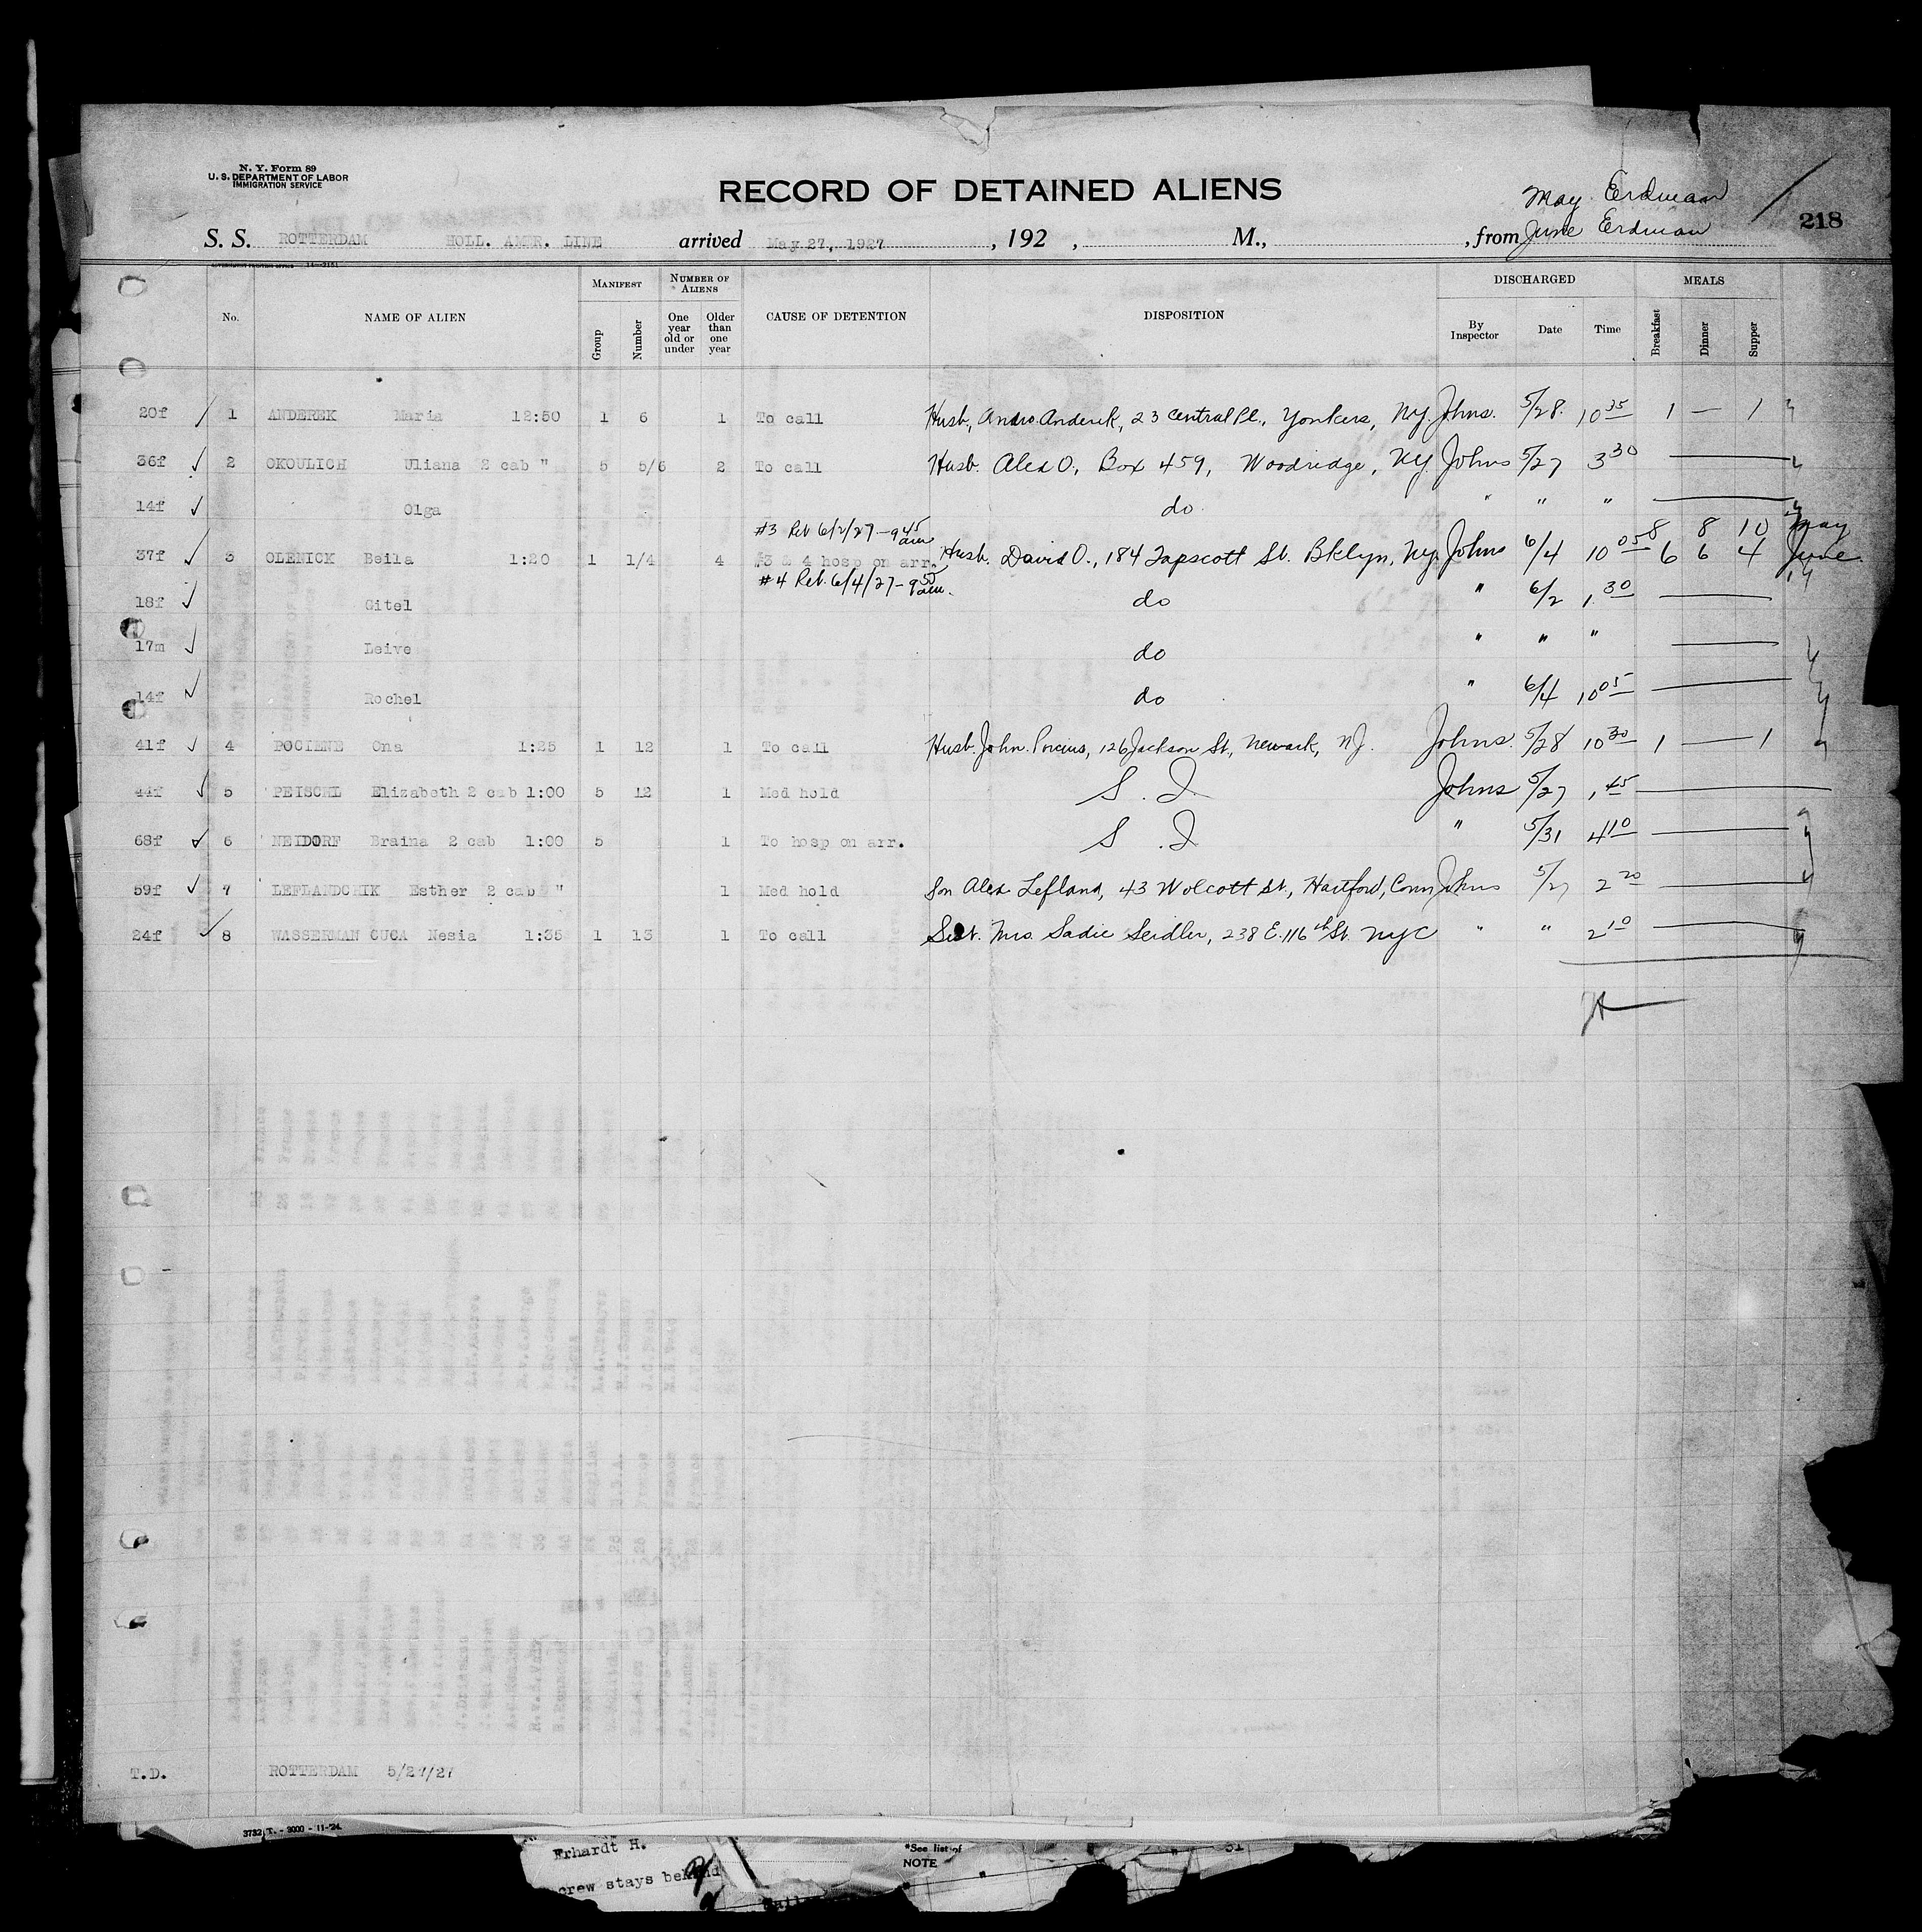 N. Y. Form 89
U. S. DEPARTMENT OF LABOR
IMMIGRATION SERVICE
RECORD OF DETAINED ALIENS
May Erdman
218
S. S. ROTTERDAM HOLL. AMER. LINE arrived May 27, 1927, 192 , M., , from June Erdman
No. NAME OF ALIEN MANIFEST Group Number NUMBER OF ALIENS One year old or under Older than one year CAUSE OF DETENTION DISPOSITION DISCHARGED By Inspector Date Time MEALS Breakfast Dinner Supper
20f 1 ANDEREK Maria 12:50 1 6 1 To call Husb, Andro Anderik, 23 Central Pl., Yonkers, NY. Johns. 5/28. 10 35 1 — 1
36f 2 OKOULICH Uliana 2 cab " 5 5/6 2 To call Husb. Alex O, Box 459, Woodridge, NY. Johns 5/27 3 30
14f Olga do " " "
#3 Ret 6/2/27 - 9 45 am 8 8 10 May
37f 3 OLENICK Beila 1:20 1 1/4 4 #3 & 4 hosp on arr. Husb. David O., 184 Tapscott St. Bklyn, NY. Johns 6/4 10 05 6 6 4 June
#4 Ret. 6/4/27 - 9 50 am.
18f Gitel do " 6/2 1 30
17m Leive do " " "
14f Rochel do " 6/4 10 05
41f 4 POCIENE Ona 1:25 1 12 1 To call Husb. John Pocius, 126 Jackson St, Newark, NJ. Johns. 5/28 10 30 1 — 1
44f 5 PEISCHL Elizabeth 2 cab 1:00 5 12 1 Med hold S. I. Johns 5/27 1 45
68f 6 NEIDORF Braina 2 cab 1:00 5 1 To hosp on arr. S. I. " 5/31 4 10
59f 7 LEFLANDCHIK Esther 2 cab " 1 Med hold Son Alex Lefland, 43 Wolcott St., Hartford, Conn Johns 5/27 2 20
24f 8 WASSERMAN CUCA Nesia 1:35 1 13 1 To call Sist. Mrs. Sadie Seidler, 238 E. 116th St. NYC " " 2 10
T.D. ROTTERDAM 5/27/27
3732 T. - 3000 - 11-'24.
Erhardt H.
crew stays behind
*See list of
NOTE